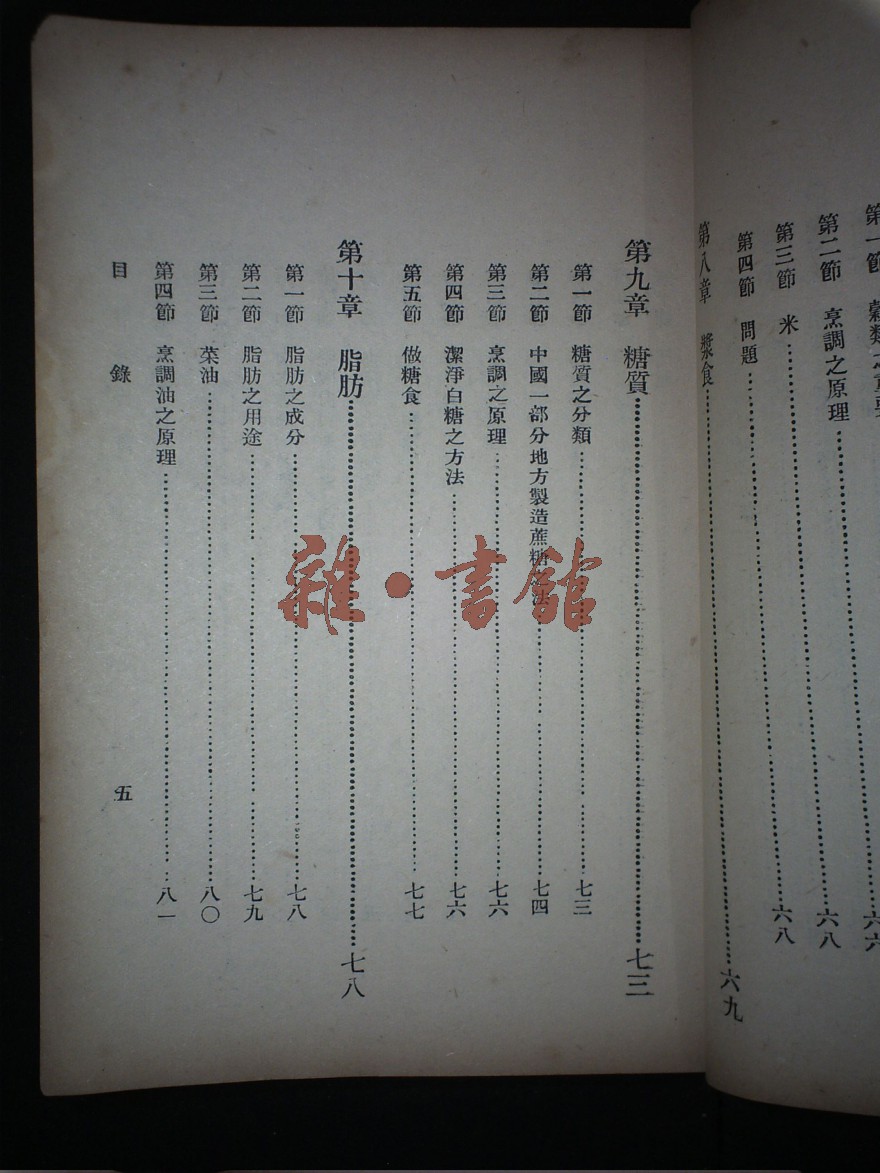 第二節　烹調之原理……六八
第三節　米……六八
第四節　問題
第八章　漿食……六九
第九章　糖質……七三
第一節　糖質之分類……七三
第二節　中國一部分地方製造蔗糖之法……七四
第三節　烹調之原理……七六
第四節　潔淨白糖之方法……七六
第五節　做糖食……七七
第十章　脂肪……七八
第一節　脂肪之成分……七八
第二節　脂肪之用途……七九
第三節　菜油……八〇
第四節　烹調油之原理……八一
目錄
五
雜·書館